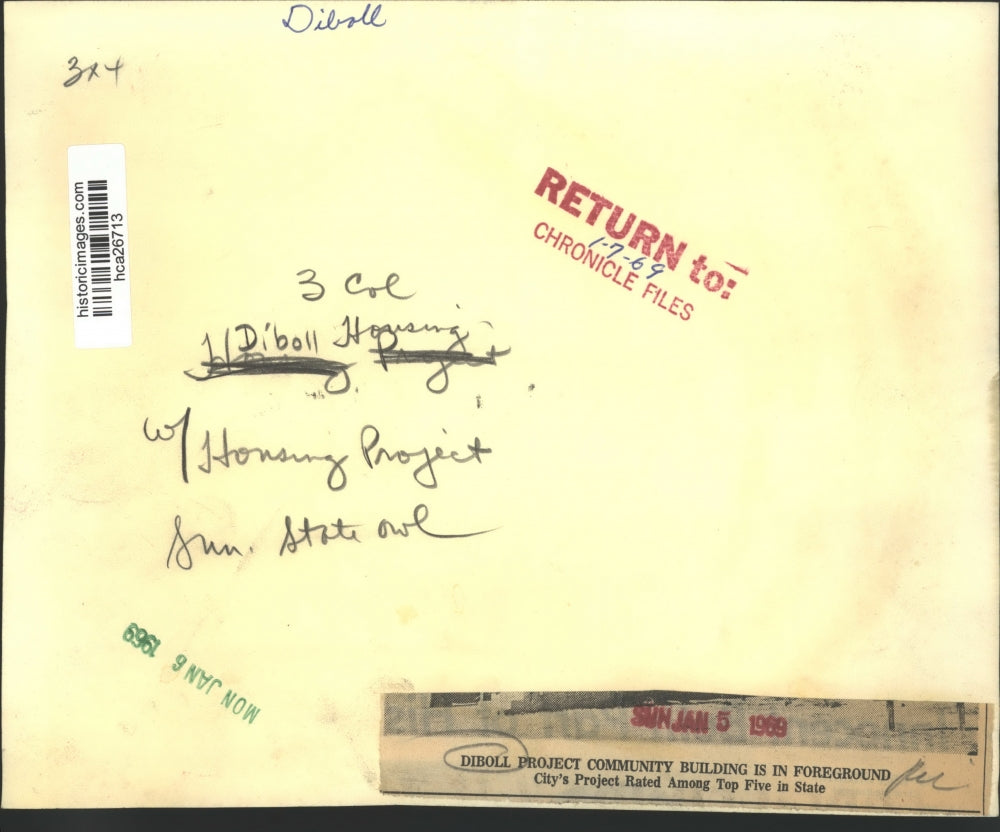 Diboll
3x4
historicimages.com
hca26713
RETURN to:
1-7-69
CHRONICLE FILES
3 Col
Diboll Housing
Housing Project
w/ Housing Project
Sun. State owl
MON JAN 6 1969
SUN JAN 5 1969
DIBOLL PROJECT COMMUNITY BUILDING IS IN FOREGROUND
City's Project Rated Among Top Five in State